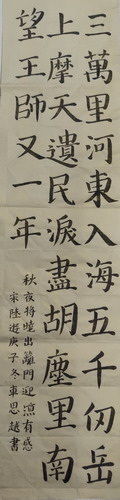 三萬里河東入海五千仞岳
上摩天遺民淚盡胡塵里南
望王師又一年
秋夜將曉出籬門迎涼有感
宋陸遊庚子冬車思越書